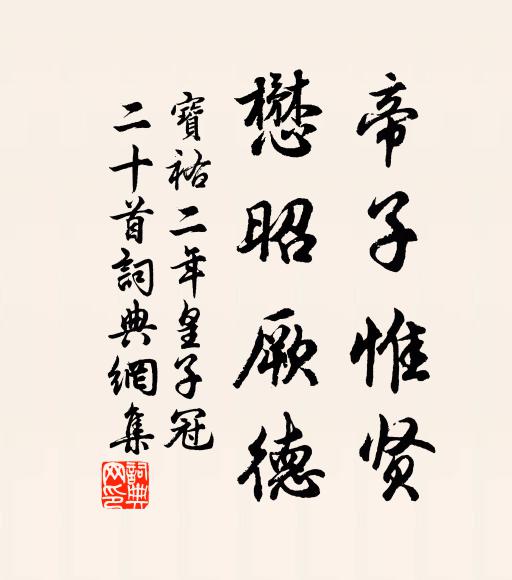 帝子惟贤
懋昭厥德
寶祐二年皇子冠
二十首詞典網集
詞典网印